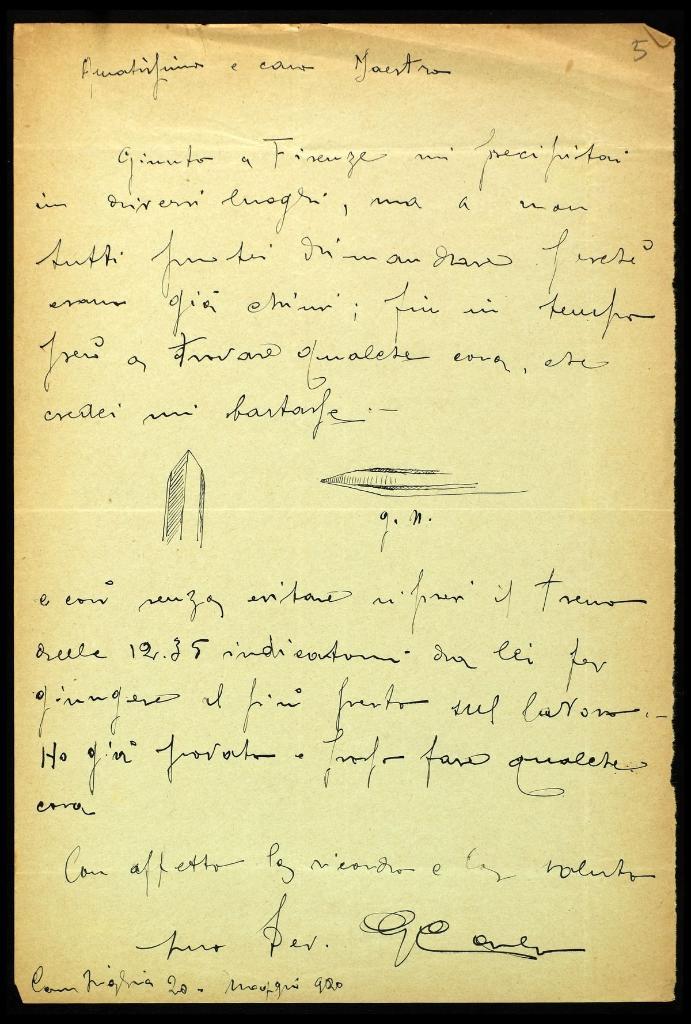 5
Amatissimo e caro Maestro
Giunto a Firenze mi precipitai
in diversi luoghi, ma a non
tutti potei dimandare perchè
erano già chiusi; fui in tempo
però a trovare qualche cosa, che
credei mi bastasse. -
g. n.
e così senza esitare ripresi il treno
delle 12.35 indicatomi da lei per
giungere al più presto sul lavoro. -
Ho già provato e posso fare qualche
cosa
Con affetto la ricordo e la saluto
suo Dev.
20 - maggio 920